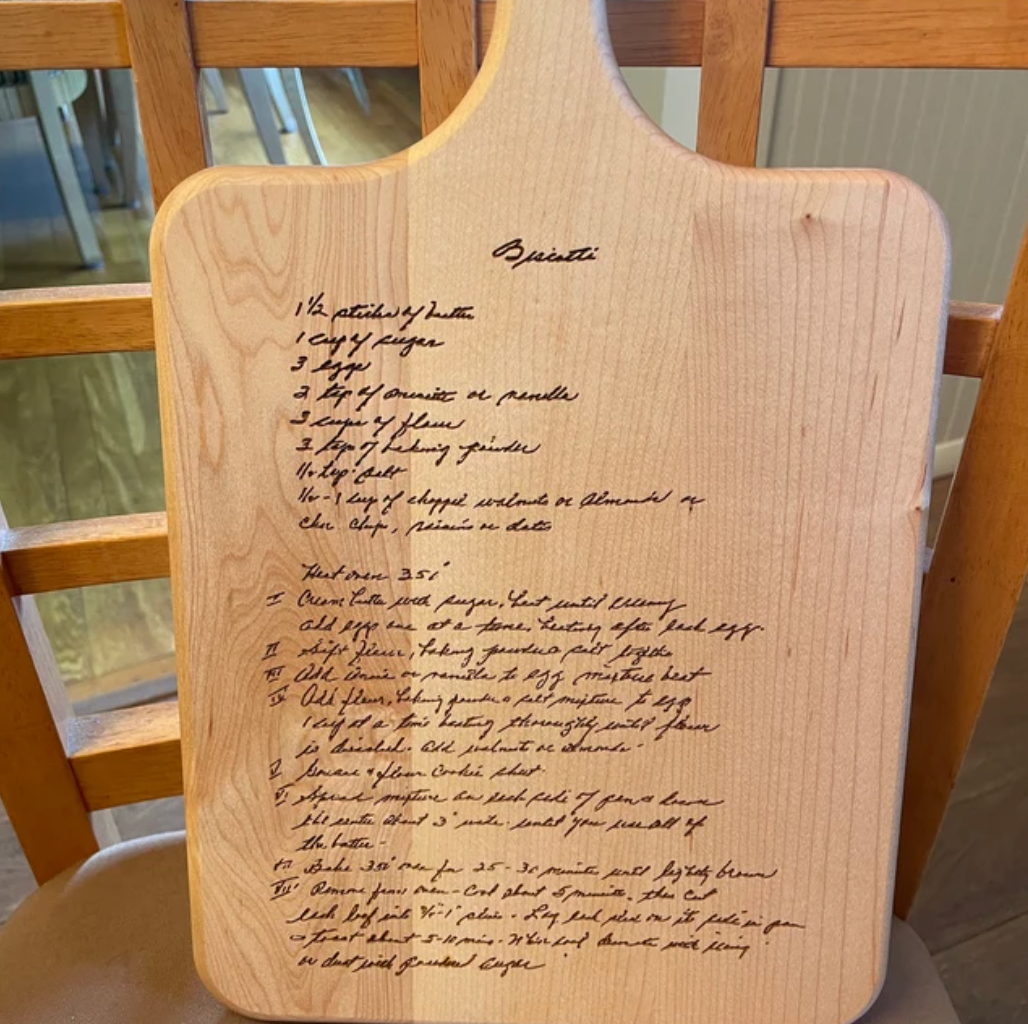 Biscotti
1 1/2 sticks of butter
1 cup of sugar
3 eggs
2 tsp of or vanilla
3 cups of flour
3 tsp of baking powder
1/2 tsp. salt
1/2 - 1 cup of chopped walnuts or Almonds or
choc chips, raisins or dates
Heat oven 350°
I Cream butter with sugar, beat until creamy
add eggs one at a time, beating after each egg.
II Sift flour, baking powder & salt together
III Add anise or vanilla to egg mixture beat
IV Add flour, baking powder & salt mixture to egg
1 cup at a time beating thoroughly until flour
is dissolved. Add walnuts or almonds -
V Grease & flour Cookie sheet.
VI Spread mixture on each side of pan & down
the center about 3" wide until you use all of
the batter -
VII Bake 350° oven for 25 - 30 minutes until lightly brown
VIII Remove from oven - Cool about 5 minutes. then Cut
each loaf into 3/4 - 1" slices. Lay each slice on its side in pan
& toast about 5-10 mins. When cool Decorate with icing
or dust with powdered sugar